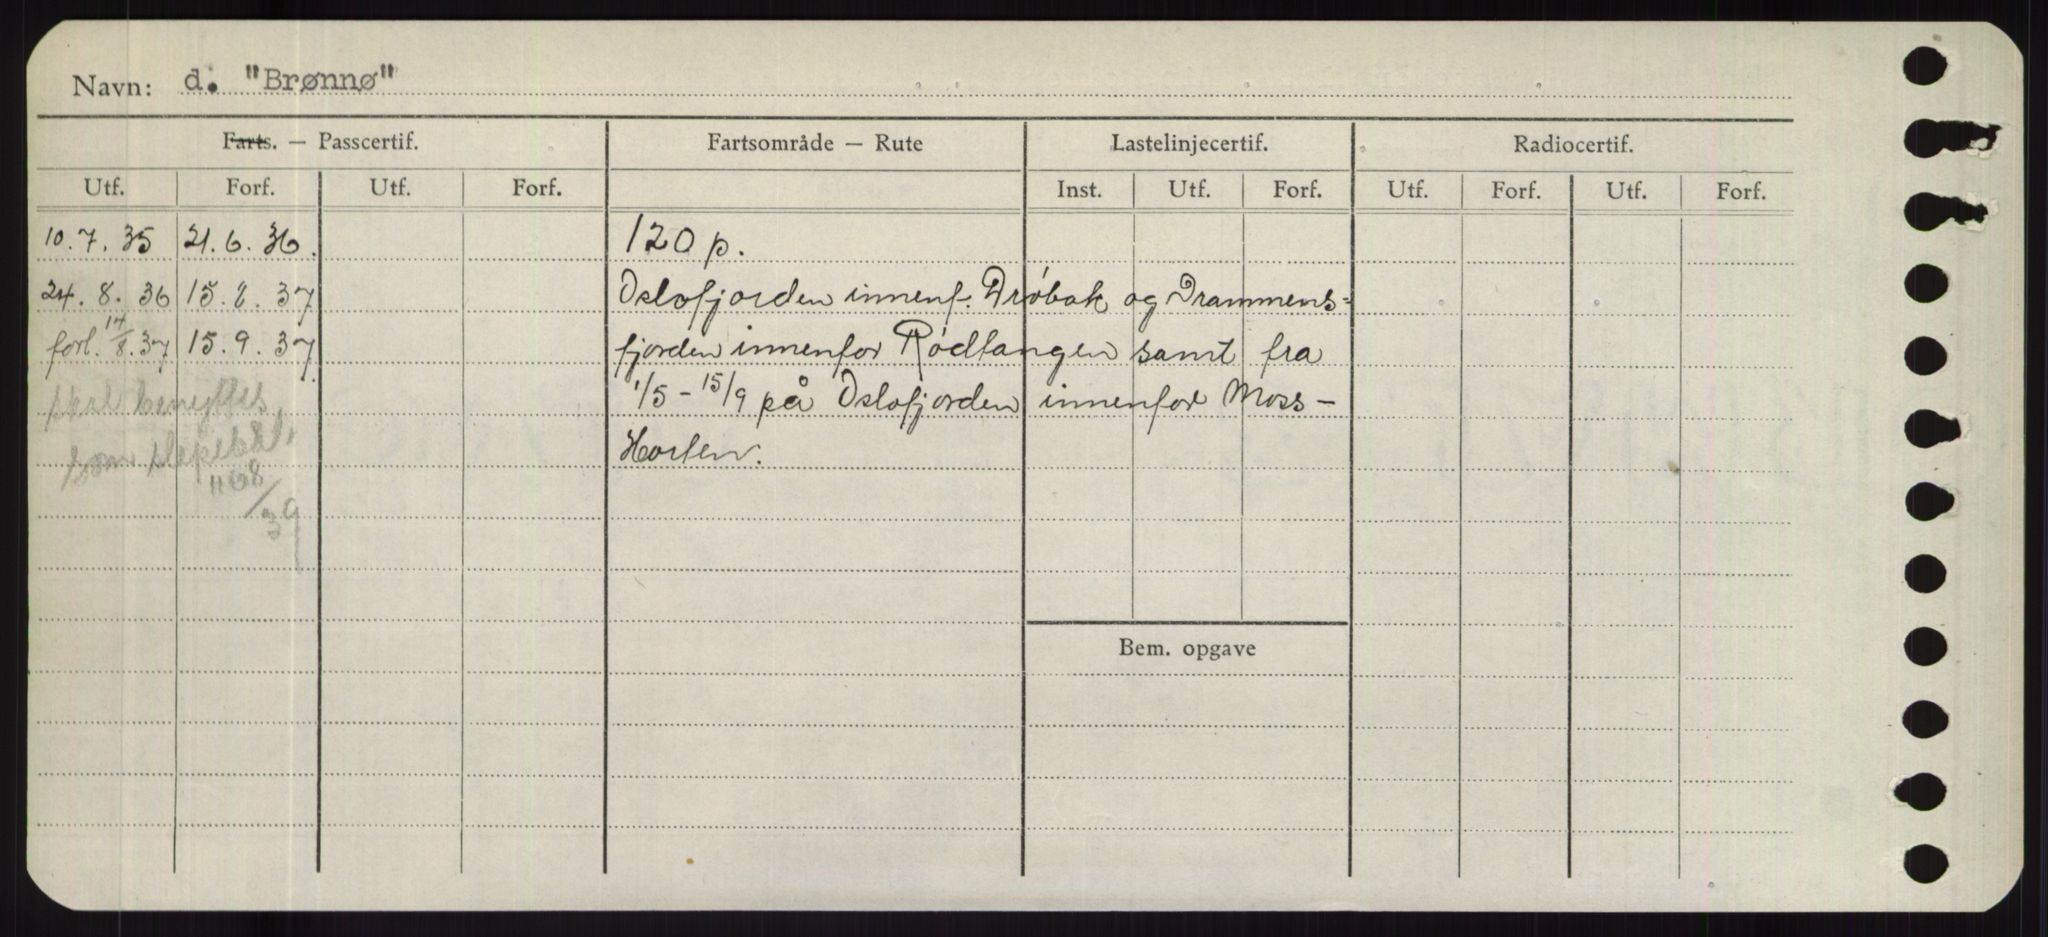 Navn: d. "Brønnø"
Farts. — Passcertif. Fartsområde — Rute Lastelinjecertif. Radiocertif.
Utf. Forf. Utf. Forf. Inst. Utf. Forf. Utf. Forf. Utf. Forf.
10.7.35 21.6.36. 120 p.
24.8.36 15.8.37 Oslofjorden innenf. Drøbak og Drammens=
forl. 14/8.37 15.9.37 fjorden innenfor Rødtangen samt fra
skal benyttes 1/5 - 15/9 på Oslofjorden innenfor Moss-
som slepebåt, Horten.
/39
Bem. opgave